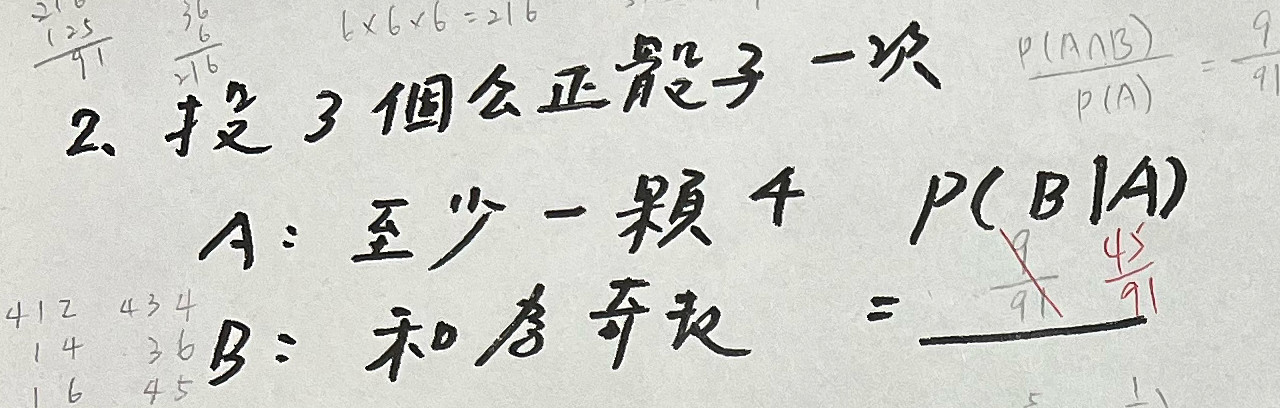 216
125
91
36
6
216
6×6×6=216
2、投3個公正骰子一次
P(A∩B)/P(A) = 9/91
A：至少一顆4 P(B|A)
B：和為奇數 =
9/91 45/91
412 434
14 36
16 45